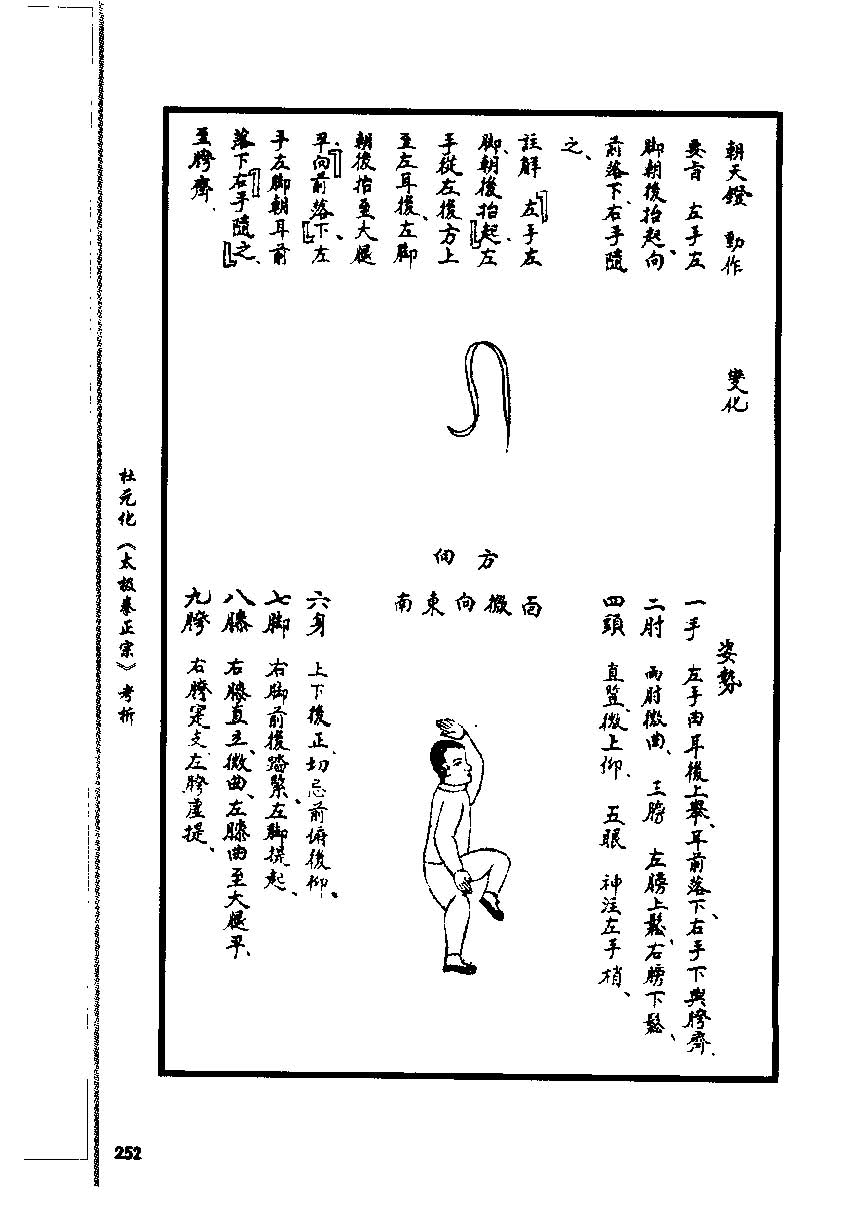 朝天鐙 動作
要旨 左手左
脚朝後抬起、向
前落下、右手隨
之、
註解 『左手左
脚、朝後抬起』、左
手從左後方上
至左耳後、左脚
朝後抬至大腿
平、『向前落下』、左
手左脚朝耳前
落下『右手隨之』、
至胯齊、
變化
方向
面微向東南
姿勢
一手 左手由耳後上舉、耳前落下、右手下與胯齊、
二肘 兩肘微曲、 三膀 左膀上鬆、右膀下鬆、
四頭 直竖微上仰、 五眼 神注左手梢、
六身 上下後正、切忌前俯後仰、
七脚 右脚前後踏緊、左脚提起、
八膝 右膝直立、微曲、左膝曲至大腿平、
九胯 右胯寔支、左胯虛提、
杜元化《太极拳正宗》考析
252